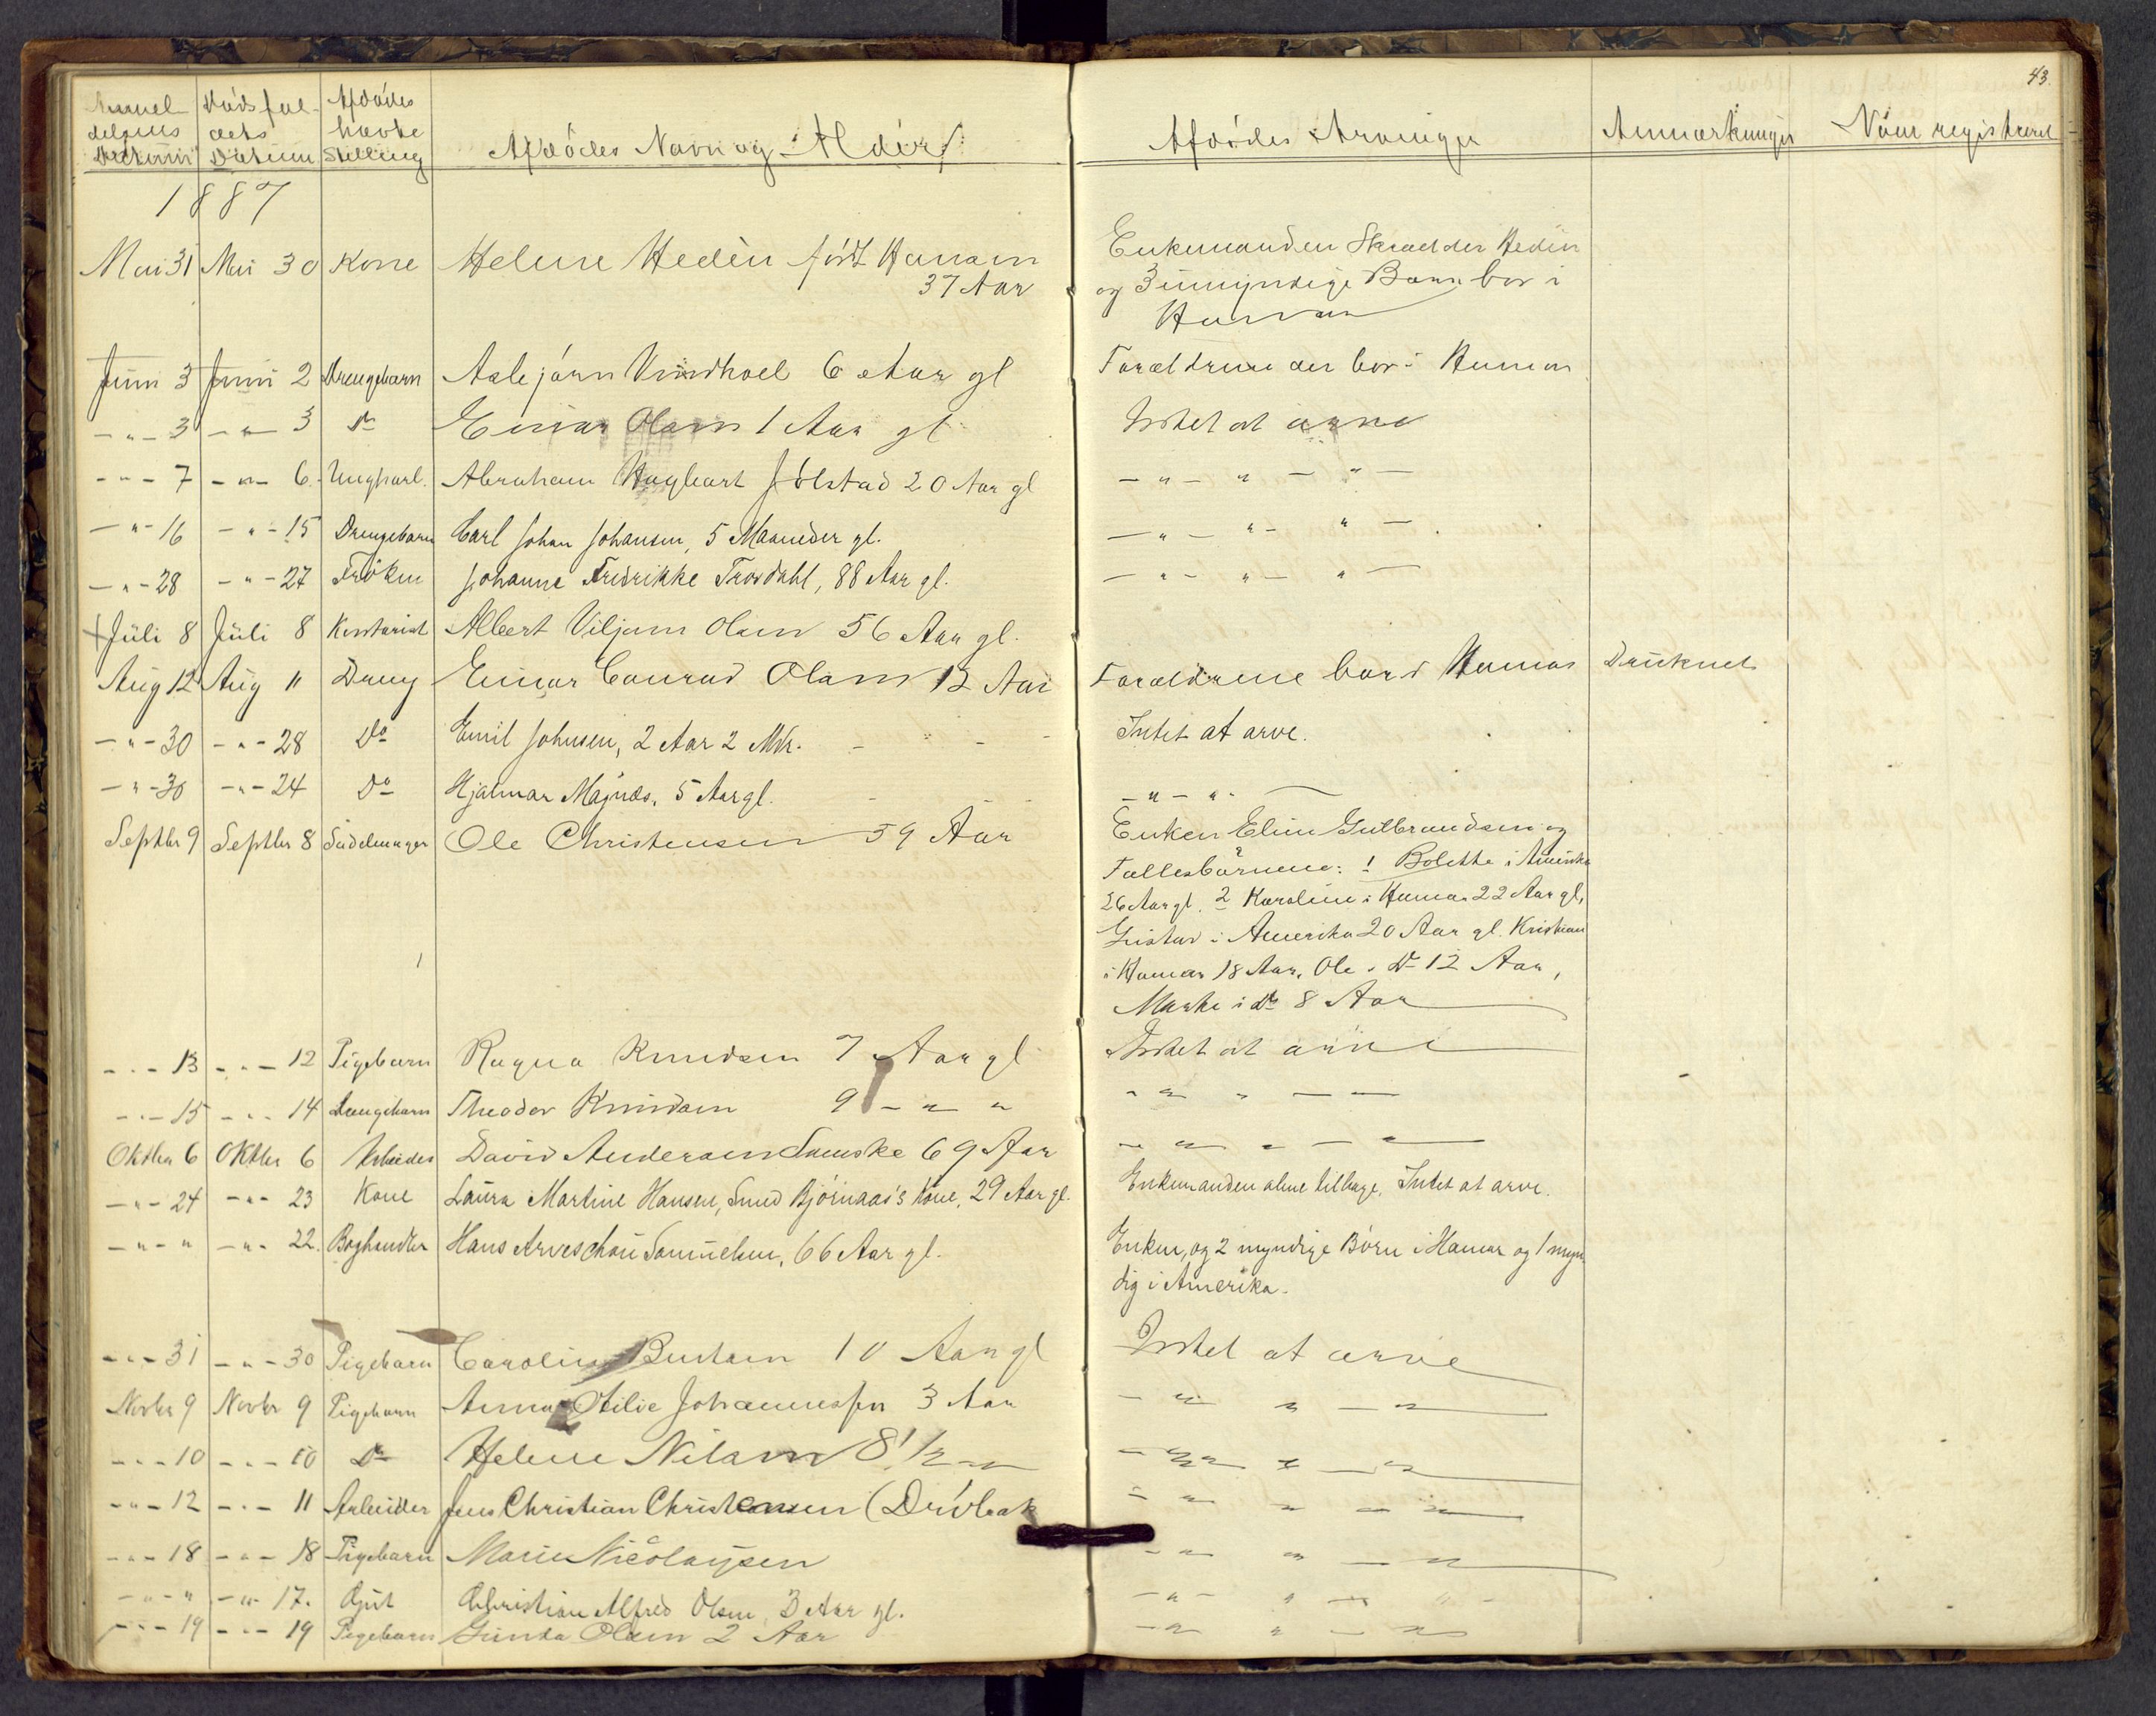 43.
Anmel- Dødsfal- Afdødes
delsens dets havte
Datum Datum Stilling Afdødes Navn og Alder Afdødes Arvinger Anmærkninger Naar registreret
1887
Mai 31 Mai 30 Kone Helene Hedèn født Hansen Enkemanden Skrædder Hedèn
37 Aar og 3 umyndige Børn bor i
Hamar
Juni 3 Juni 2 Drengebarn Asbjørn Vindhoel 6 Aar gl Forældrene der bor i Hamar
- " - 3 - " - 3 Do Einar Olsen 1 Aar gl Intet at arve
- " - 7 - " - 6. Ungkarl. Abraham Hagbart Jølstad 20 Aar gl - " - " - " -
- " - 16 - " - 15 Drengebarn Carl Johan Johansen, 5 Maaneder gl. - " - " - " -
- " - 28 - " - 27 Frøken Johanne Fredrikke Trovdahl, 88 Aar gl. - " - " - " -
+ Juli 8 Juli 8 Kontorist Albert Viljam Olsen 56 Aar gl.
Aug 12 Aug 11 Dreng Einar Conrad Olsen 12 Aar Forældrene bor i Hamar Druknet
- " - 30 - " - 28 Do Emil Johnsen, 2 Aar 2 Mdr. Intet at arve.
- " - 30 - " - 24 Do Hjalmar Magnus, 5 Aar gl. - " - " -
Septbr 9 Septbr 8 Sadelmager Ole Christensen 59 Aar Enken Eline Gulbrandsen og
Fællesbørnene: 1 Bolette i Amerika
26 Aar gl. 2 Karoline i Hamar 22 Aar gl,
Gustav i Amerika 20 Aar gl. Kristian
i Hamar 18 Aar, Ole i Do 12 Aar,
Marthe i Do 8 Aar
- " - 13 - " - 12 Pigebarn Ragna Knudsen 7 Aar gl Intet at arve
- " - 15 - " - 14 Drengebarn Theodor Knudsen 9 - " " - " " - -
Oktbr 6 Oktbr 6 Arbeider David Andersen Svenske 69 Aar - " - " - " -
- " - 24 - " - 23 Kone Laura Martine Hansen, Smed Bjørnaas's Kone, 29 Aar gl. Enkemanden alene tilbage. Intet at arve.
- " - " - " - 22. Boghandler Hans Arveschou Samuelsen, 66 Aar gl. Enken, og 2 myndige Børn i Hamar og 1 myn-
dig i Amerika.
- " - 31 - " - 30 Pigebarn Caroline 10 Aar gl Intet at arve
Novbr 9 Novbr 9 Pigebarn Anna Otilie Johannessen 3 Aar - " " - " -
- " - 10 - " - 10 Do Helene Nilsen 8 1/2 - " - " " - " -
- " - 12 - " - 11 Arbeider Jens Christian Christensen (Drøbak - " " - " -
- " - 18 - " - 18 Pigebarn Marie Nicolaysen - " " - " -
- " - " - " - 17. Gut Christian Alfred Olsen, 3 Aar gl. - " - " - " -
- " - 19 - " - 19 Pigebarn Gunda Olsen 2 Aar - " " - "